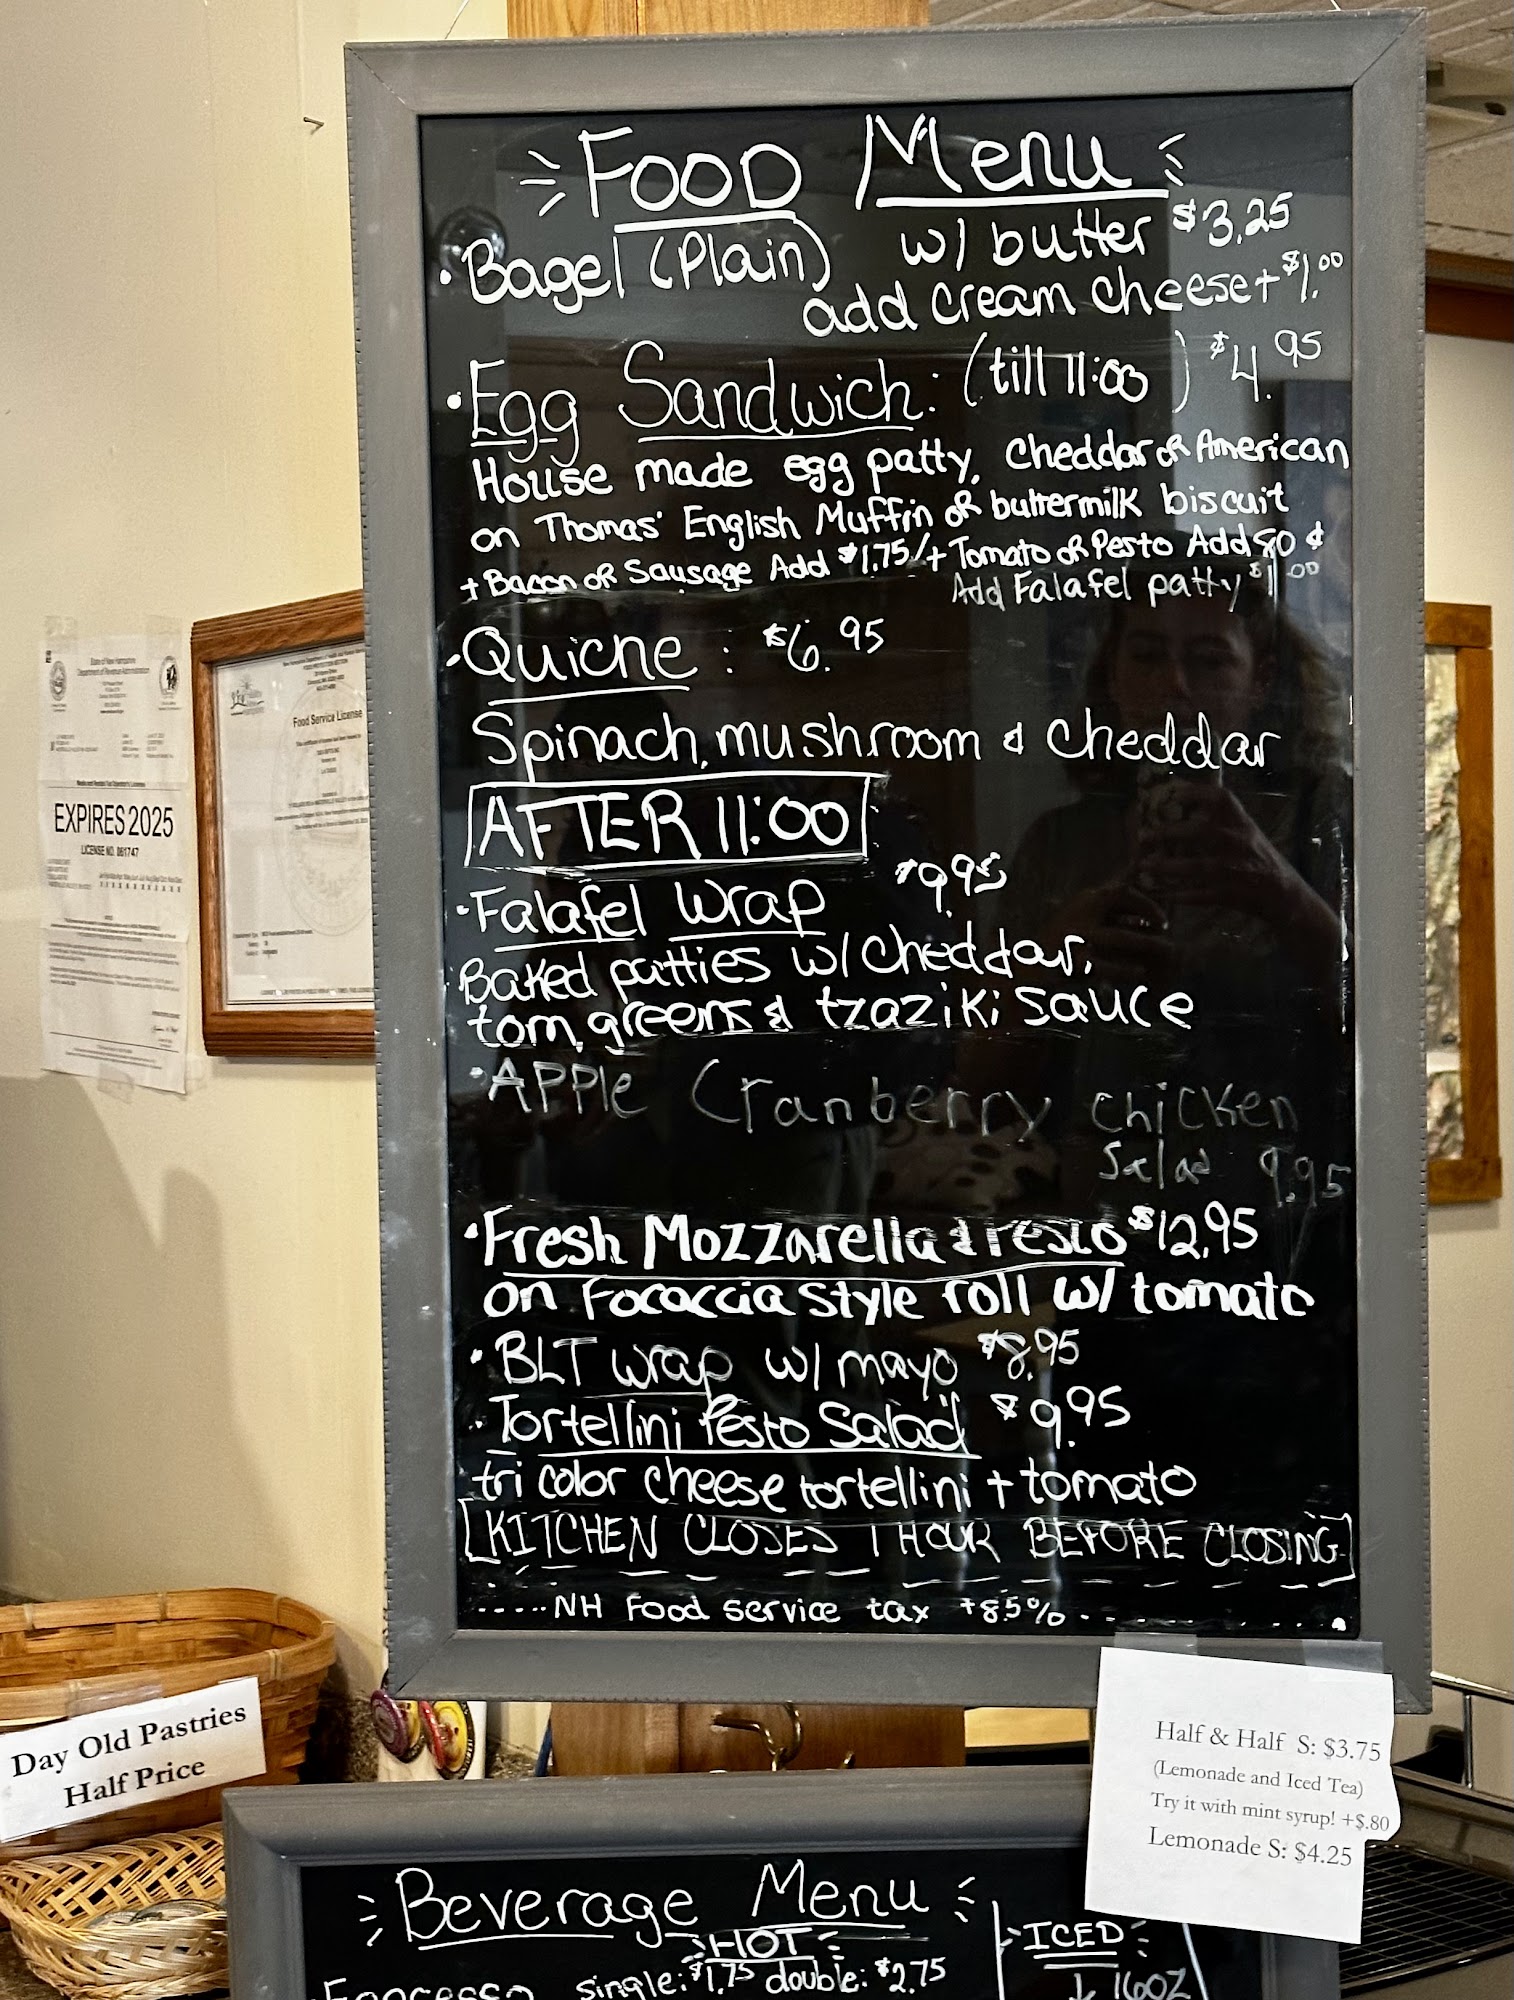 Food Menu
• Bagel (Plain) w/ butter $3.25
add cream cheese + $1.00
• Egg Sandwich: (till 11:00) $4.95
House made egg patty, cheddar or American
on Thomas' English Muffin or buttermilk biscuit
+ Bacon or Sausage Add $1.75/+ Tomato or Pesto Add 80¢
Add Falafel patty $1.00
• Quiche: $6.95
Spinach, mushroom & cheddar
AFTER 11:00
• Falafel Wrap $9.95
Baked patties w/ cheddar,
tom, greens & tzaziki sauce
• APPle Cranberry chicken
Salad 9.95
• Fresh Mozzarella & Pesto $12.95
on Focaccia style roll w/ tomato
• BLT wrap w/ mayo $8.95
• Tortellini Pesto Salad $9.95
tri color cheese tortellini + tomato
[KITCHEN CLOSES 1 HOUR BEFORE CLOSING]
.....NH Food service tax +8.5%.....
State of New Hampshire
Department of Revenue Administration
EXPIRES 2025
LICENSE NO. 061747
Food Service License
Day Old Pastries
Half Price
Half & Half S: $3.75
(Lemonade and Iced Tea)
Try it with mint syrup! +$.80
Lemonade S: $4.25
Beverage Menu
HOT
ICED
Espresso single: $1.75 double: $2.75
↓ 16oz